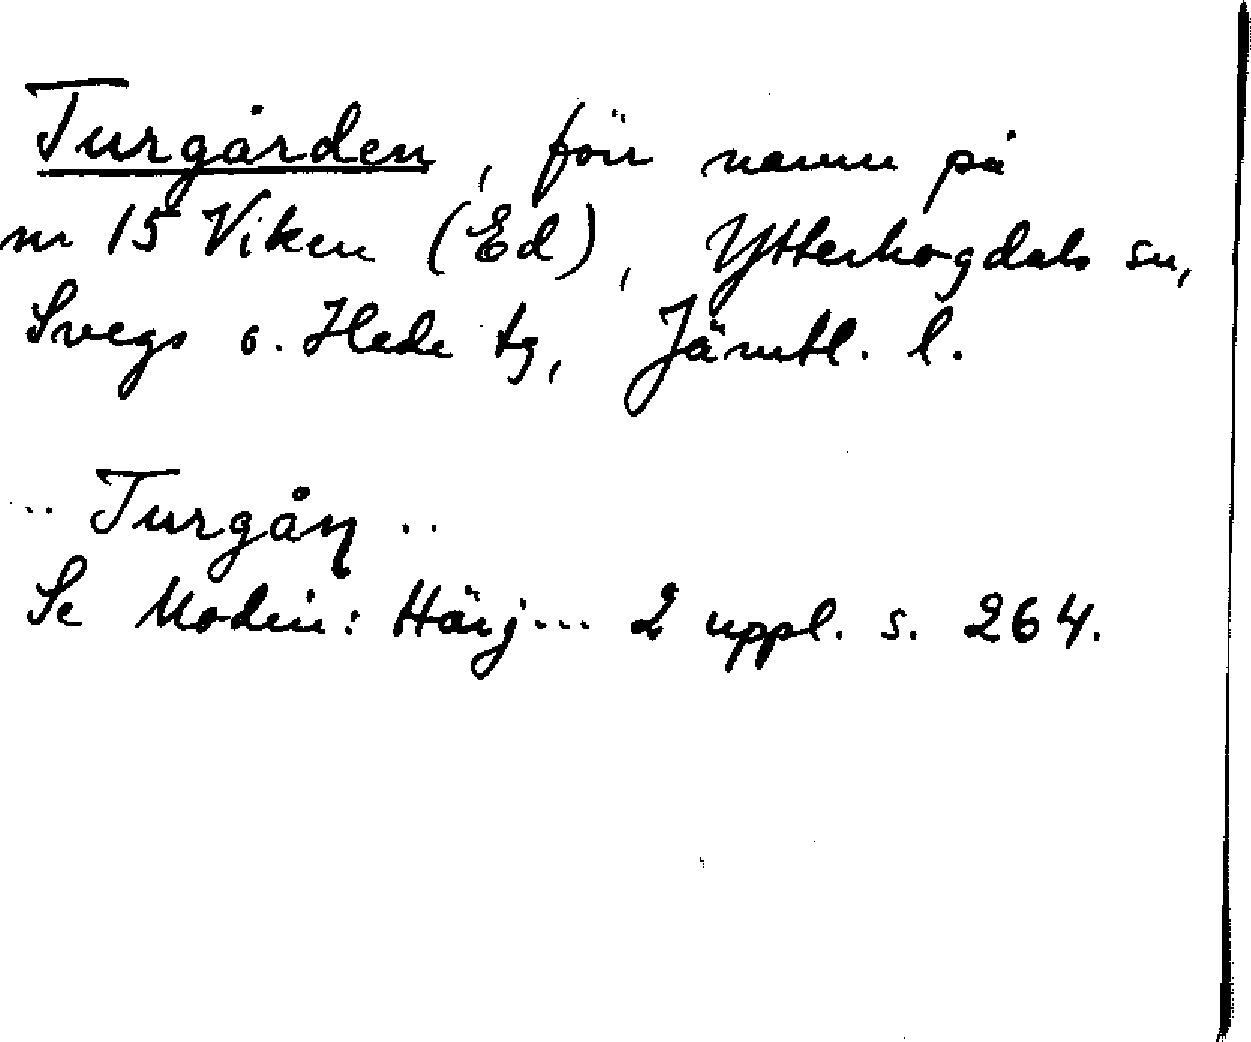 Turgården, förr namn på
nr 15 Viken (Ed), Ytterhogdals sn,
Svegs o. Hede tg, Jämtl. l.
.. Turgåɳ ..
Se Modin: Härj... 2 uppl. s. 264.